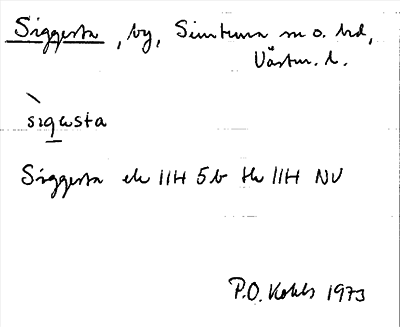 Siggesta, by, Simtuna sn o. hd,
Västm. l.
sigesta
Siggesta ek 11H 5b tk 11H NV
P.O. Kohls 1973